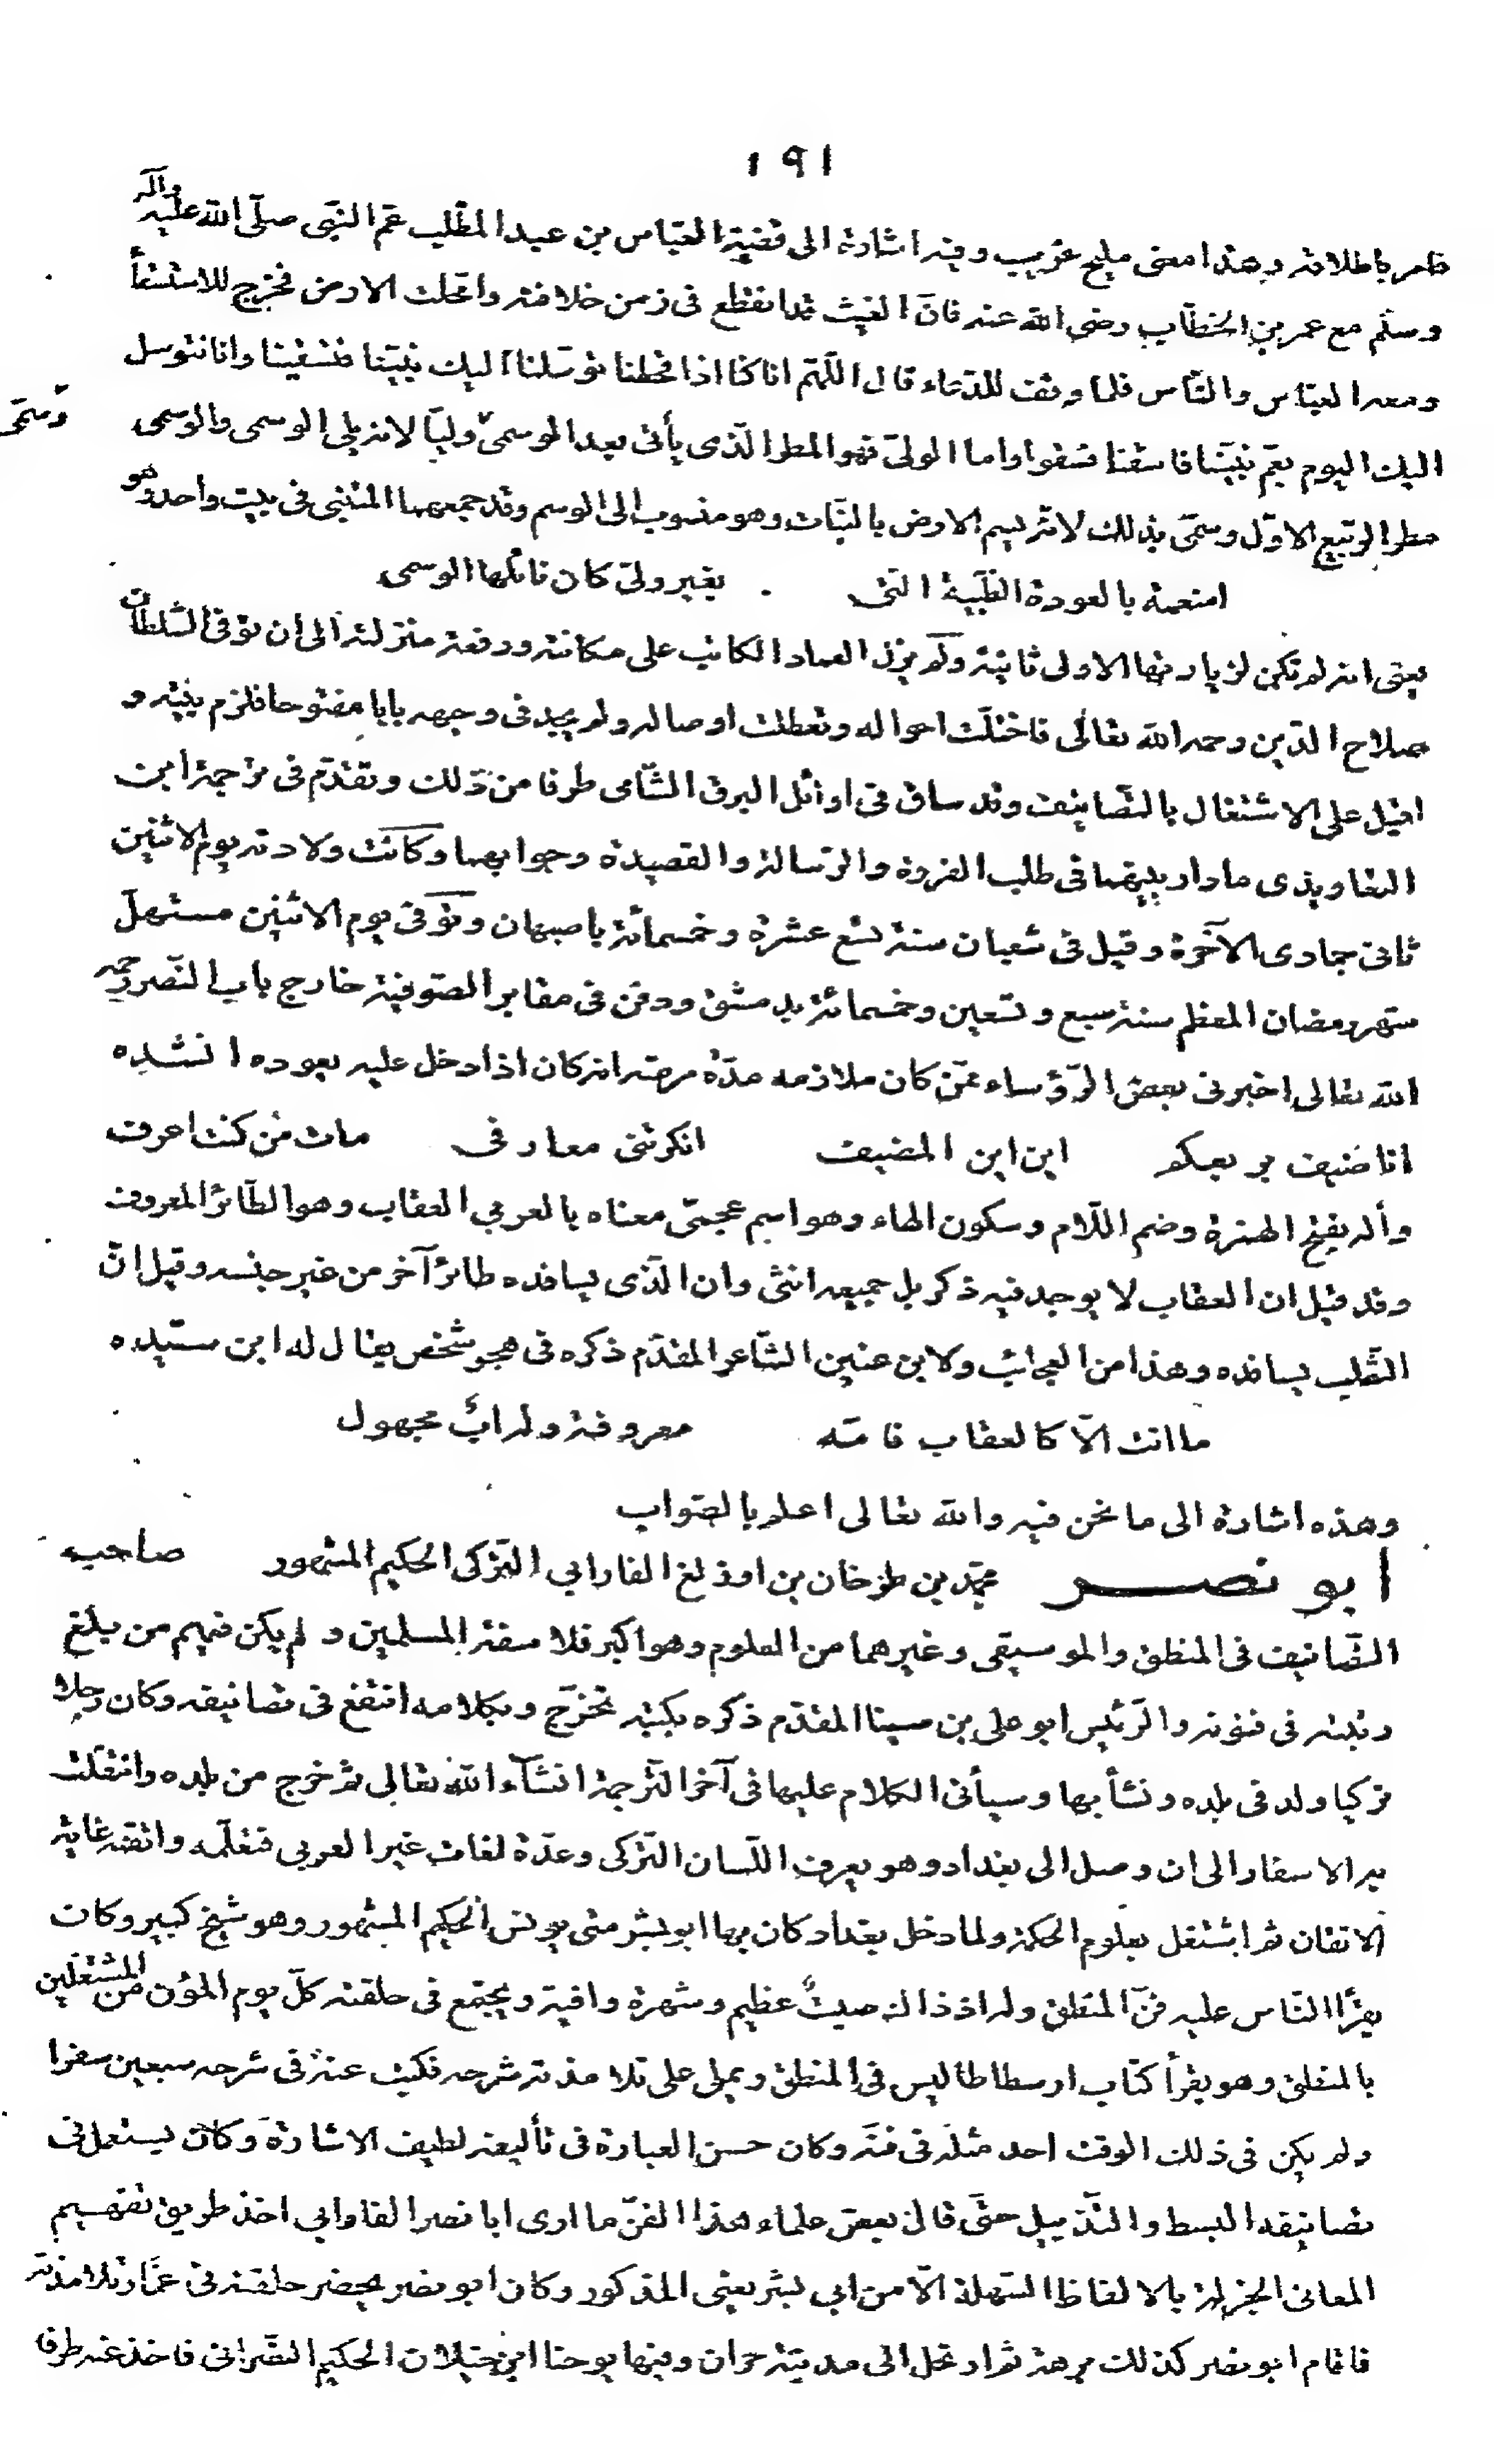 ١٩١
فامر باطلاقه وهذا معنى مليح غريب وفيه اشارة الى قضية العبّاس بن عبد المطّلب عمّ النبّى صلّى اللّه عليه وآله
وسلّم مع عمر بن الخطّاب رضى اللّه عنه فانّ الغيث قد انقطع فى زمن خلافته وامحلت الارض فخرج للاستسقأ
ومعه العبّاس والنّاس فلما وقف للدّعاء قال اللّهمّ انا كنّا اذا قحطنا توسّلنا اليك بنبيّنا فتسقينا وانا نتوسل
اليك اليوم بعمّ نبيّنا فاسقنا فسقوا واما الولىّ فهو المطر الّذى يأتى بعد الوسمىّ وسمّى وليّا لانه يلى الوسمى والوسمى
مطر الرّبيع الاوّل وسمّى بذلك لانّه يسم الارض بالنّبات وهو منسوب الى الوسم وقد جمعهما المتنبى فى بيت واحد وهو
امنعمة بالعودة الظّبية الّتى بغير ولىّ كان نائلها الوسمى
يعنى انه لم تكن لزيارتها الاولى ثانية ولم يزل العماد الكاتب على مكانته ورفعة منزلته الى ان توفى السّلطان
صلاح الدّين رحمه اللّه تعالى فاختلّت احواله وتعطلت اوصاله ولم يجد فى وجهه بابا مفتوحا فلزم بيته و
اقبل على الاشتغال بالتّصانيف وقد ساق فى اوائل البرق الشّامى طرفا من ذلك وتقدّم فى ترجمة ابن
التعاويذى ما دار بينهما فى طلب الفروة والرّسالة والقصيدة وجوابهما وكانت ولادته يوم الاثنين
ثانى جمادى الآخرة وقيل فى شعبان سنة تسع عشرة وخمسمائة باصبهان وتوفى يوم الاثنين مستهلّ
شهر رمضان المعظم سنة سبع وتسعين وخمسمائة بدمشق ودفن فى مقابر الصّوفية خارج باب النّصر رحمه
اللّه تعالى اخبرنى بعض الرّؤساء ممّن كان ملازمه مدّة مرضه انه كان اذا دخل عليه يعوده انشده
انا ضيف بربعكم اين اين المضيف انكرتنى معارفى مات من كنت اعرف
وأله بفتح الهمزة وضم اللّام وسكون الهاء وهو اسم عجمىّ معناه بالعربى العقاب وهو الطّائر المعروف
وقد قيل ان العقاب لا يوجد فيه ذكر بل جميعه انثى وان الّذى يسافده طائر آخر من غير جنسه وقيل انّ
الثّعلب يسافده وهذا من العجائب ولابن عنين الشّاعر المقدّم ذكره فى هجو شخص يقال له ابن سيّده
ما انت الّا كالعقاب فامّه معروفة وله اب مجهول
وهذه اشارة الى ما نحن فيه واللّه تعالى اعلم بالصّواب
ابو نصر محمّد بن طرخان بن اوزلغ الفارابى التّركى الحكيم المشهور صاحب
التّصانيف فى المنطق والموسيقى وغيرهما من العلوم وهو اكبر فلاسفة المسلمين ولم يكن فيهم من بلغ
رتبته فى فنونه والرّئيس ابو على بن سينا المقدّم ذكره بكتبه تخرّج وبكلامه انتفع فى تصانيفه وكان رجلا
تركيا ولد فى بلده ونشأ بها وسيأتى الكلام عليها فى آخر التّرجمة انشآء اللّه تعالى ثم خرج من بلده وانتقلت
به الاسفار الى ان وصل الى بغداد وهو يعرف اللّسان التّركى وعدّة لغات غير العربى فتعلّمه واتقنه غاية
الاتقان ثم اشتغل بعلوم الحكمة ولما دخل بغداد كان بها ابو بشر متى يونس الحكيم المشهور وهو شيخ كبير وكان
يقرأ النّاس عليه فنّ المنطق وله اذ ذاك صيتٌ عظيم وشهرة وافية ويجتمع فى حلقته كلّ يوم المؤن من المشتغلين
بالمنطق وهو يقرأ كتاب ارسطاطاليس فى المنطق ويملى على تلامذته شرحه فكتب عنه فى شرحه سبعين سفرا
ولم يكن فى ذلك الوقت احد مثله فى فنّه وكان حسن العبارة فى تأليفه لطيف الاشارة وكان يستعمل فى
تصانيفه البسط والتّذييل حتّى قال بعض علماء هذا الفنّ ما ارى ابا نصر الفارابى اخذ طريق تفهيم
المعانى الجزلة بالالفاظ السّهلة الّا من ابى بشر يعنى المذكور وكان ابو نصر يحضر حلقته فى غمار تلامذته
فاقام ابو نصر كذلك برهة ثم ارتحل الى مدينة حران وفيها يوحنا ابن حيلان الحكيم النّصرانى فاخذ عنه طرفا